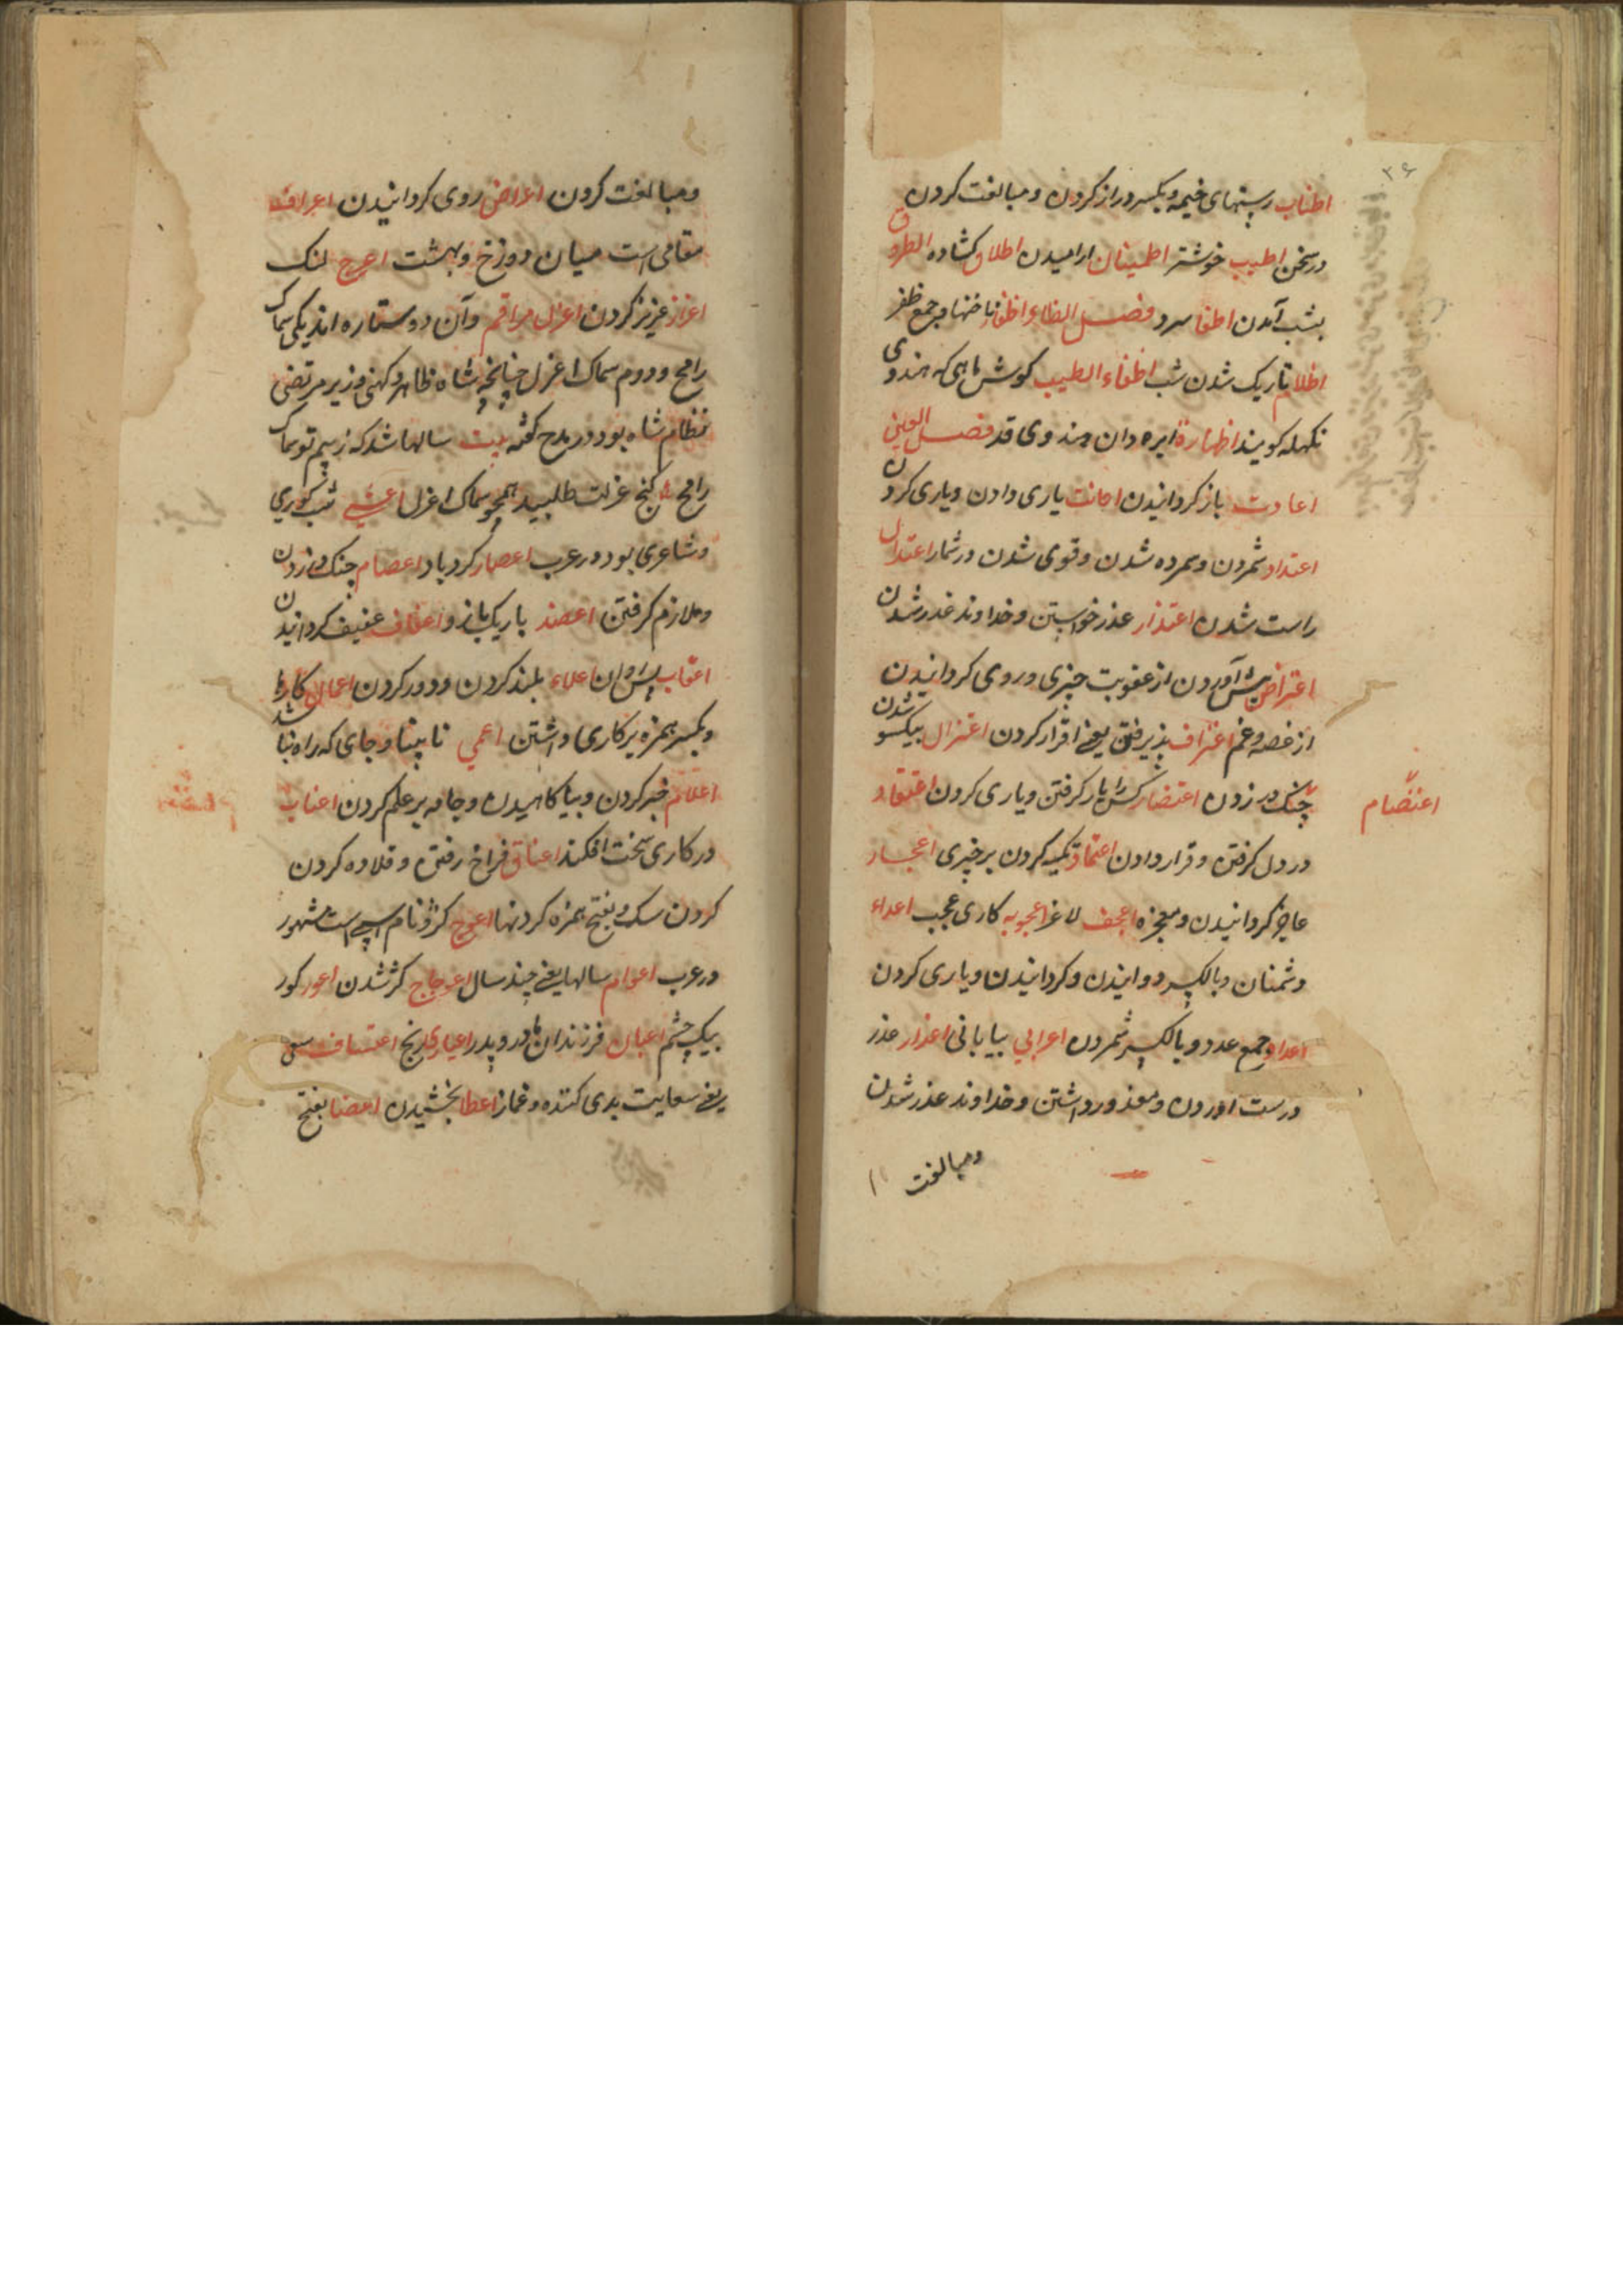 ۳۶
اطناب رسنهای خیمه و بکسر دراز کردن و مبالغت کردن
در سخن اطیب خوشتر اطمینان ارامیدن اطلاق کشاده الطروق
بشب آمدن اطفا سرد فصل الظاء اظفار ناخنها و جمع ظفر
اظلام تاریک شدن شب اظفاء الطیب کوش ماهی که هندوی
نکهله کویند اظهارة ابره دان هندوی قد فصل العین
اعادت باز کردانیدن اعانت یاری دادن و یاری کردن
اعتداد شمردن و سمرده شدن و قوی شدن در شمار اعتدال
راست شدن اعتذار عذر خواستن و خداوند عذر شدن
اعتراض پیش آوردن از عقوبت چیزی و روی کردانیدن
از غصه و غم اعتراف پذیرفتن یعنی اقرار کردن اعتزال بیکسو شدن
اعتصام
چنک در زدن اعتضاد کسی را یار کرفتن و یاری کردن اعتقاد
در دل کرفتن و قرار دادن اعتماد تکیه کردن بر چیزی اعجاز
عاجز کردانیدن و معجزه اعجف لاغر اعجوبه کاری عجب اعداء
دشمنان و بالکسر دوانیدن و کردانیدن و یاری کردن
اعداد جمع عدد و بالکسر شمردن اعرابی بیابانی اعذار عذر
درست اوردن و معذور داشتن و خداوند عذر شدن
و مبالغت
و مبالغت کردن اعراض روی کردانیدن اعراف
مقامی است میان دوزخ و بهشت اعرج لنک
اعزاز عزیز کردن اعزل مراقم وآن دو ستاره اند یکی سماک
رامح و دوم سماک اعزل چنانچه شاه طاهر دکهنی وزیر مرتضی
نظام شاه بود در مدح کفته بیت سالها شد که ز بیم تو سماک
رامح کنج عزلت طلبید همچو سماک اعزل اعشی شب کوری
و شاعری بود در عرب اعصار کردباد اعصام چنک در زدن
و ملازم کرفتن اعضد باریک بازو اعفاف عفیف کردانیدن
اعقاب پس روان اعلاء بلند کردن و دور کردن اعمال کارها
و بکسر همزه بر کاری داشتن اعمی نابینا و جای که راه نباشد
اعلام خبر کردن و بیاکاهیدن و جامه بر علم کردن اعناب
در کاری سخت افکند اعناق فراخ رفتن و قلاده کردن
کردن سک و بفتح همزه کردنها اعوج کژ و نام اسپی است مشهور
در عرب اعوام سالها یعنی چند سال اعوجاج کژ شدن اعور کور
بیک چشم اعیان فرزندان مادر و پدر اعیا رنج اعتساف سعی
یعنی سعایت بدی کننده و غماز اعطا بخشیدن اعضا بفتح